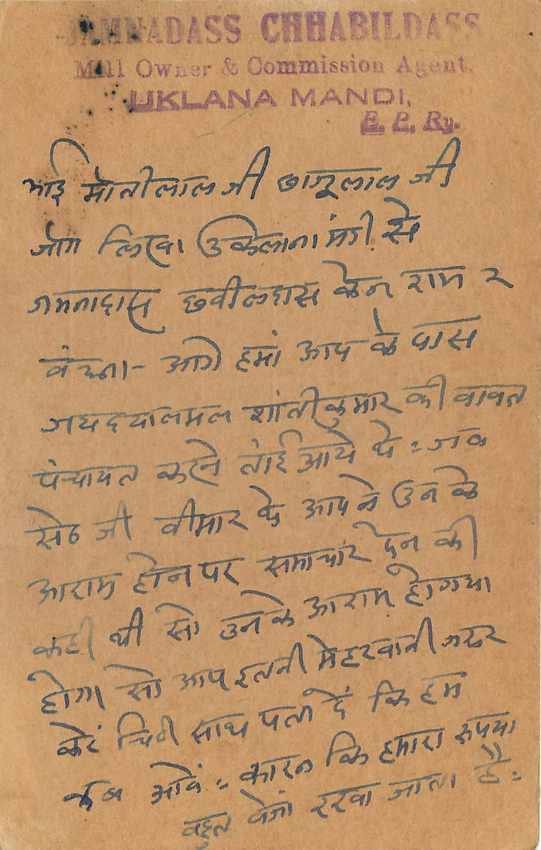 JAMNADASS CHHABILDASS
Mill Owner & Commission Agent,
UKLANA MANDI,
E. P. Ry.
भाई मोतीलाल जी छाजूलाल जी
जोग लिखा उकलाना मंडी से
जमनादास छवीलदास केन राम २
वंचना - आगे हमां आप के पास
जयदयालमल शांतीकुमार की वावत
पंचायत करने तांई आये थे : जव
सेठ जी वीमार थे आपने उन के
आराम होन पर समाचार देन की
कही थी सो उनके आराम होगया
होगा सो आप इतनी मेहरवानी जरुर
करें चिठी साथ पता दें कि हम
कब आवें : कारन कि हमारा रुपया
वहुत वेजां रखा जाता है :